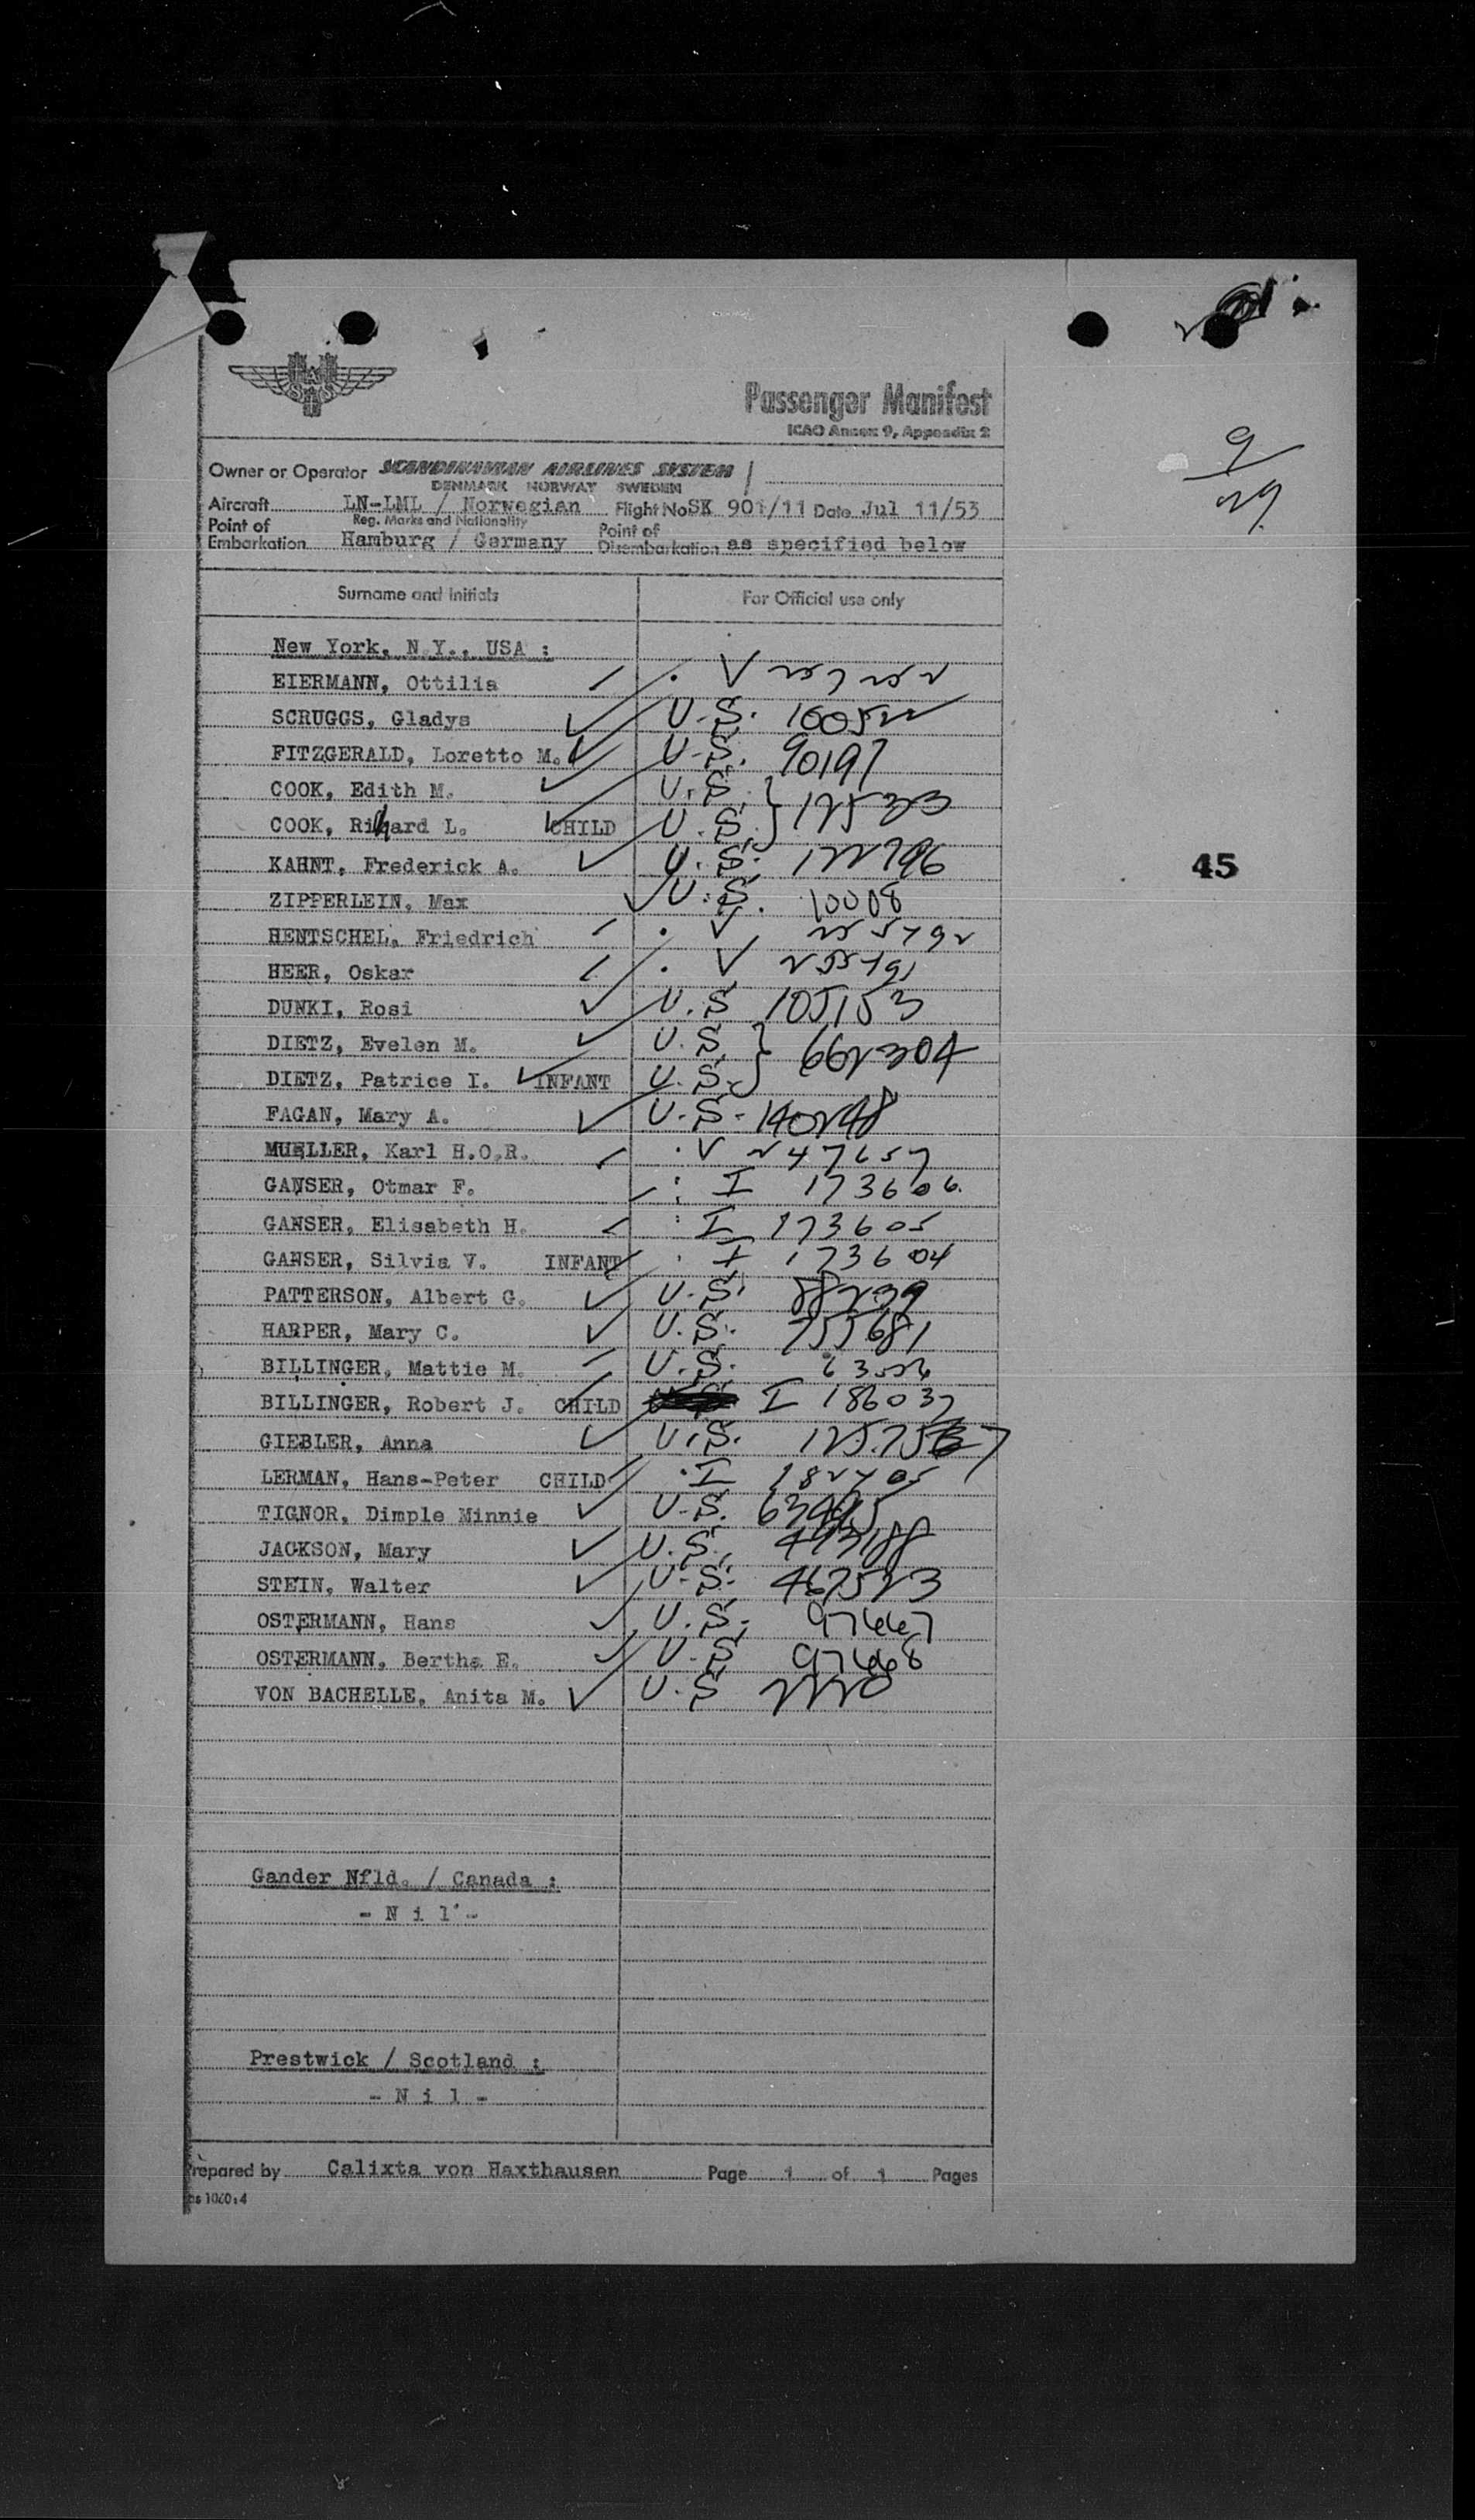 SAS
Passenger Manifest
ICAO Annex 9, Appendix 2
9
29
Owner or Operator SCANDINAVIAN AIRLINES SYSTEM
DENMARK NORWAY SWEDEN
Aircraft LN-LML / Norwegian Flight No SK 901/11 Date Jul 11/53
Reg. Marks and Nationality
Point of Embarkation Hamburg / Germany Point of Disembarkation as specified below
Surname and Initials For Official use only
New York, N.Y., USA :
EIERMANN, Ottilia V
SCRUGGS, Gladys U.S.
FITZGERALD, Loretto M. U.S. 90197
COOK, Edith M. U.S.
COOK, Richard L. CHILD U.S. 12533
KAHNT, Frederick A. U.S. 122796
ZIPPERLEIN, Max U.S. 10008
HENTSCHEL, Friedrich V
HEER, Oskar V
DUNKI, Rosi U.S. 105153
DIETZ, Evelen M. U.S. 662304
DIETZ, Patrice I. INFANT U.S.
FAGAN, Mary A. U.S. 140248
MUELLER, Karl H.O.R. V 247657
GANSER, Otmar F. I 173606
GANSER, Elisabeth H. I 173605
GANSER, Silvia V. INFANT I 173604
PATTERSON, Albert G. U.S. 88239
HARPER, Mary C. U.S. 755681
BILLINGER, Mattie M. U.S.
BILLINGER, Robert J. CHILD I 186037
GIEBLER, Anna U.S.
LERMAN, Hans-Peter CHILD I
TIGNOR, Dimple Minnie U.S.
JACKSON, Mary U.S.
STEIN, Walter U.S. 467523
OSTERMANN, Hans U.S. 97667
OSTERMANN, Bertha E. U.S. 97668
VON BACHELLE, Anita M. U.S. 2220
45
Gander Nfld. / Canada :
- N i l -
Prestwick / Scotland :
- N i l -
Prepared by Calixta von Haxthausen Page 1 of 1 Pages